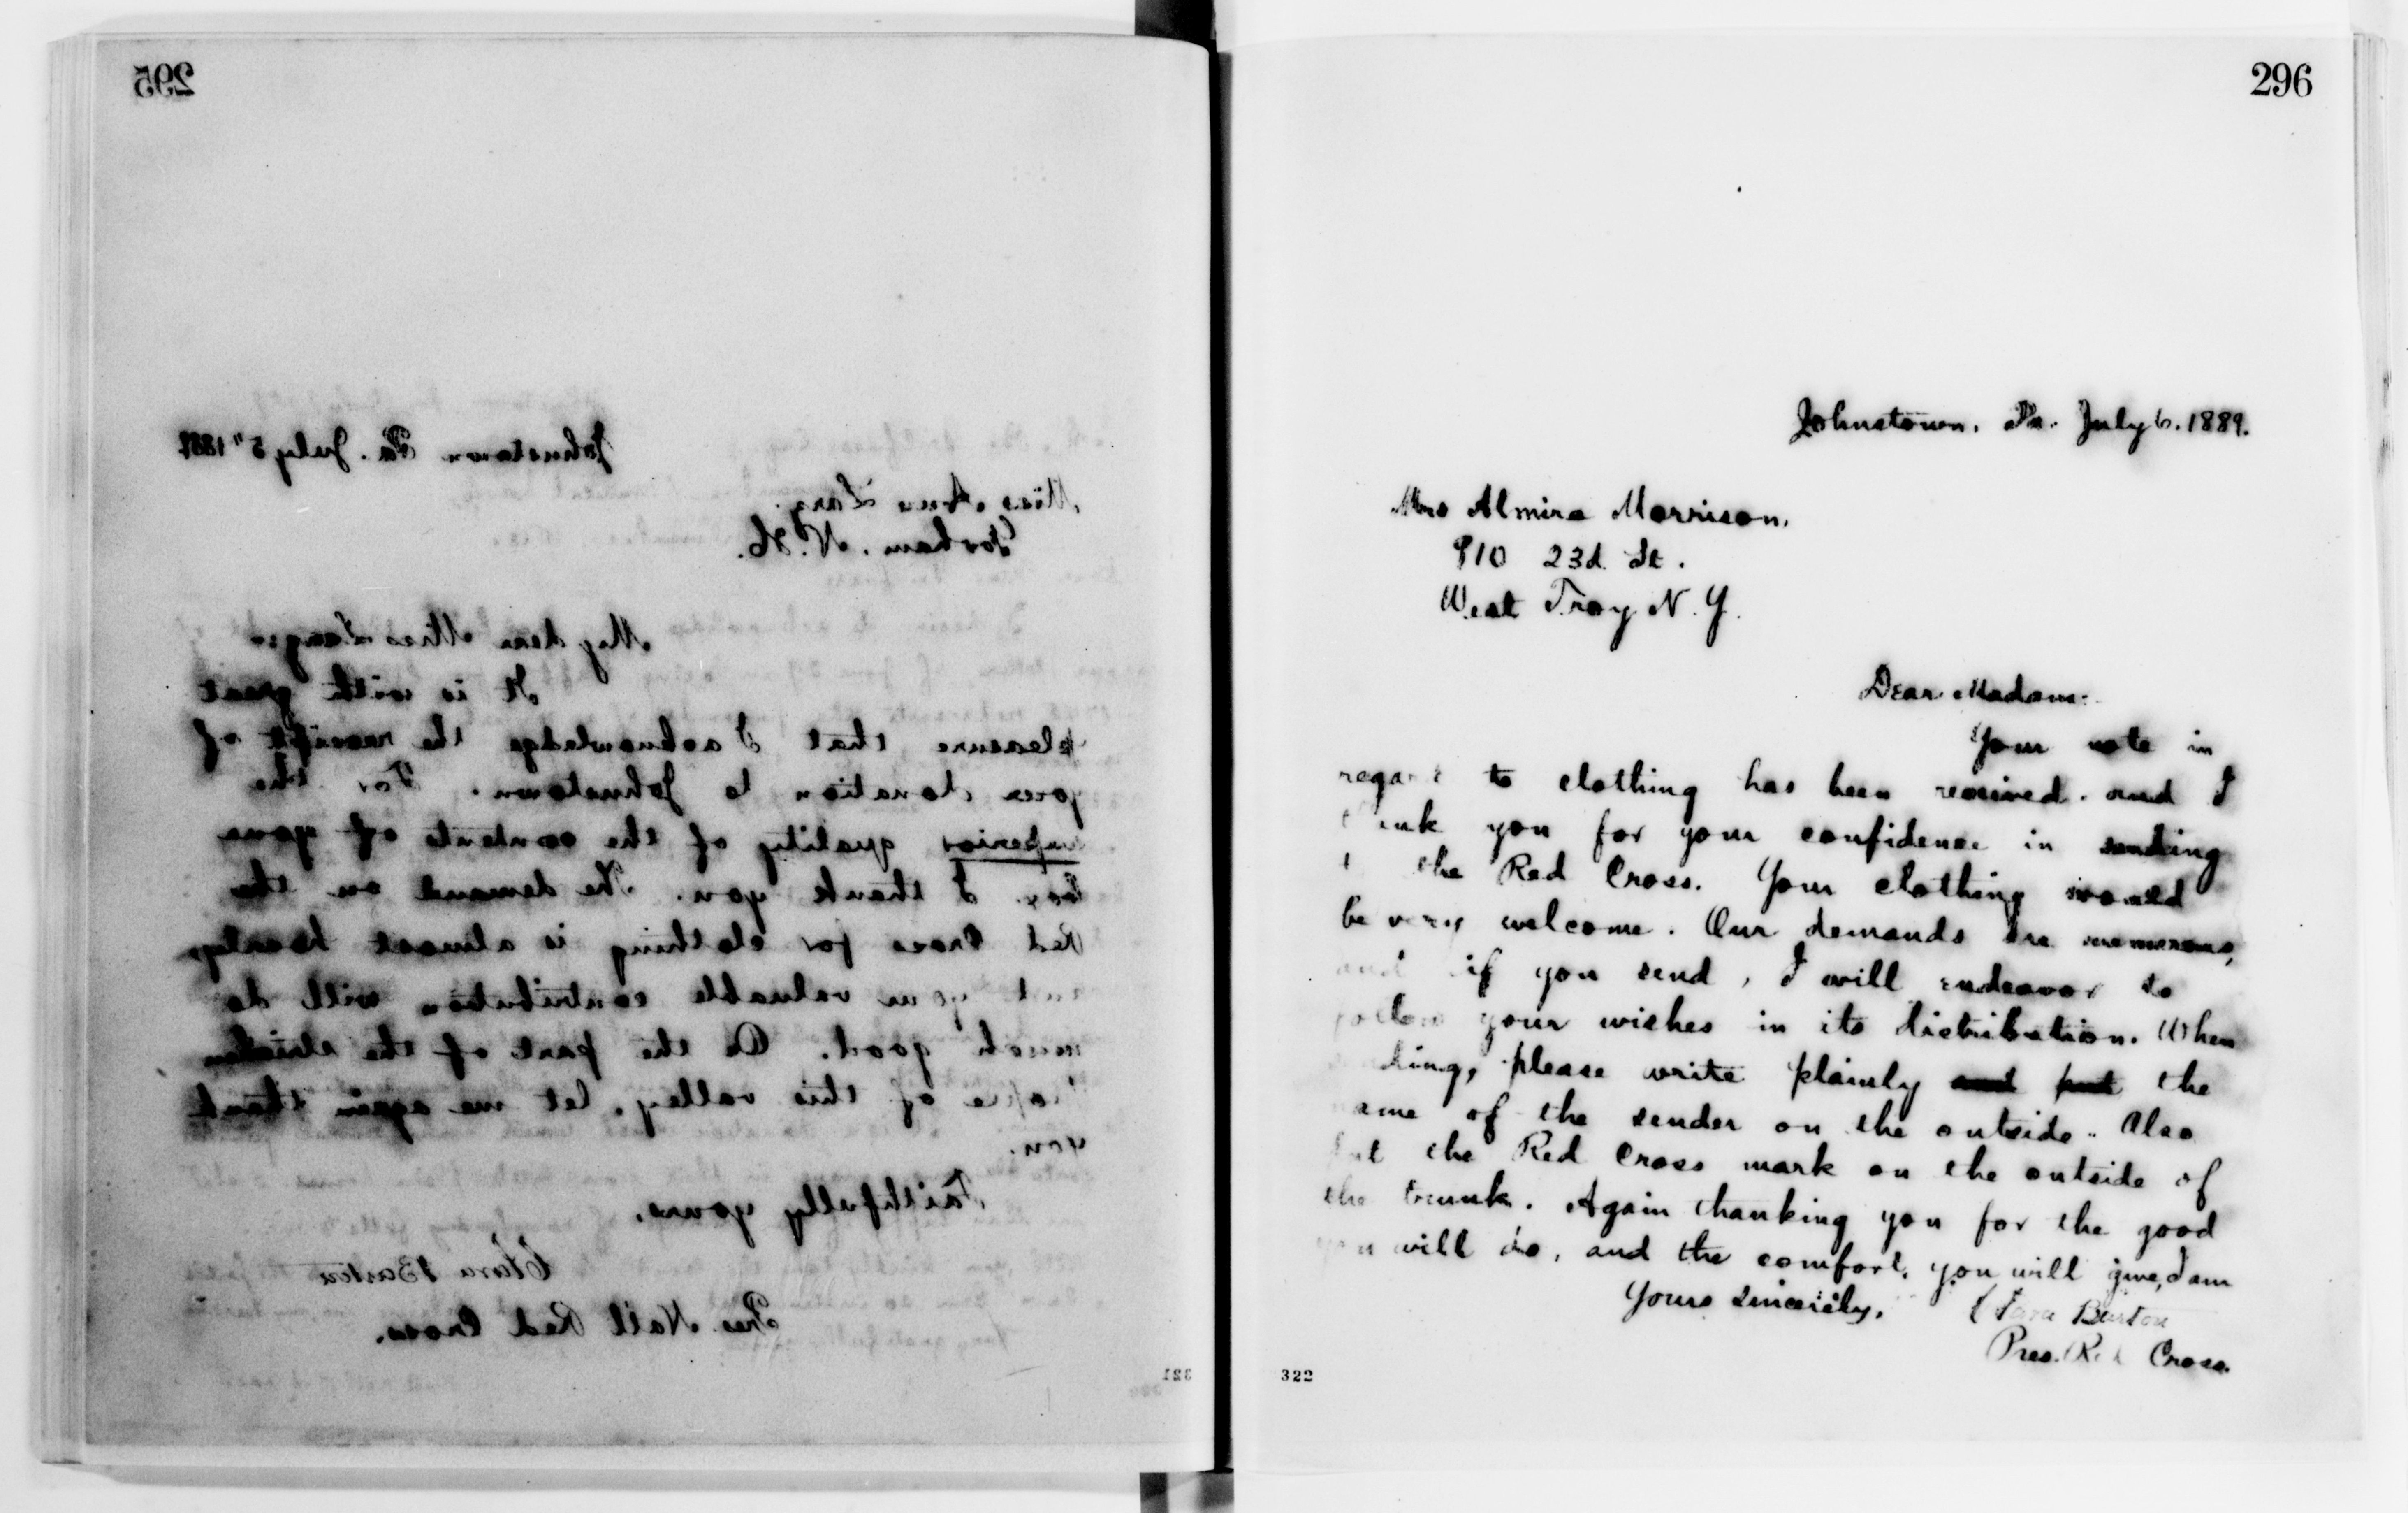 295
Johnstown Pa. July 5" 1889
Miss Ann Lary.
Gorham. N. H.
My dear Miss Lary:-
It is with great
pleasure that I acknowledge the receipt of
your donation to Johnstown. For the
superior quality of the contents of your
box I thank you. The demand on the
Red Cross for clothing is almost hourly,
and your valuable contribution will do
much good. On the part of the stricken
people of this valley, let me again thank
you.
Faithfully yours,
Clara Barton
Pres. Natl Red Cross.
321
296
Johnstown. Pa. July 6. 1889.
Mrs Almira Morrison.
910 23d. St.
West Troy N. Y.
Dear Madam:-
Your note in
regard to clothing has been received. and I
thank you for your confidence in sending
the Red Cross. Your clothing would
be very welcome. Our demands are numerous,
and if you send, I will endeavor to
follow your wishes in its distribution. When
sending, please write plainly and put the
name of the sender on the outside. Also
put the Red Cross mark on the outside of
the trunk. Again thanking you for the good
you will do, and the comfort you will give, I am
Yours sincerely,
Clara Barton
Pres. Red Cross.
322